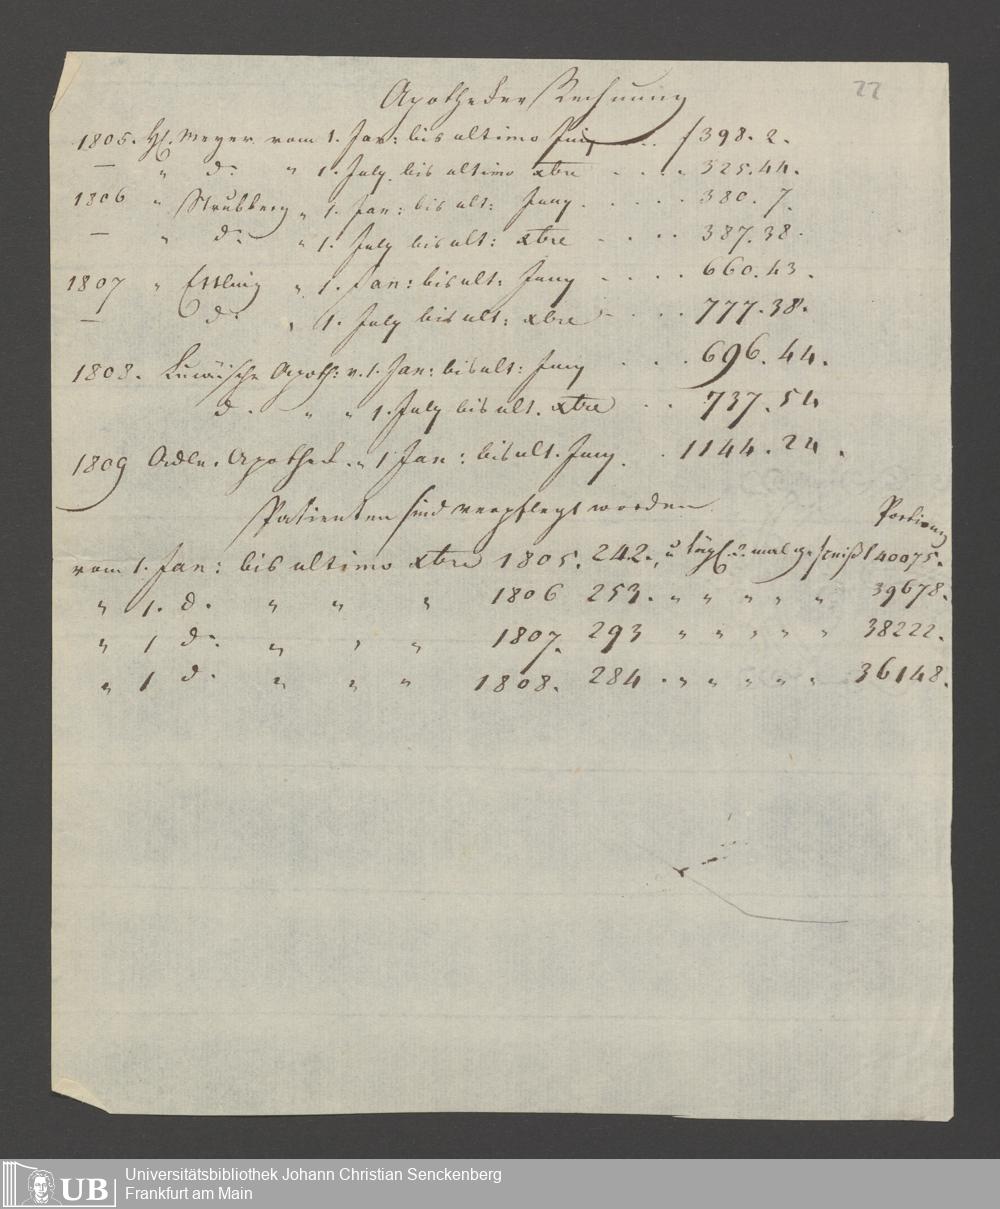 22
Apotheker Rechnung
1805. H. Meyer vom 1. Jan: bis ultimo Juny .. f 398. 2.
— " do. " 1. July bis ultimo xbre .... 325. 44.
1806 " Strubberg " 1. Jan: bis ult: Juny ..... 380. 7.
— " do. " 1. July bis ult: xbre .... 387. 38.
1807 " Ettling " 1. Jan: bis ult: Juny .... 660. 43.
— do. " 1. July bis ult: xbre .... 777. 38.
1808. Apoth: v. 1. Jan: bis ult: Juny ... 696. 44.
d. " " 1. July bis ult. xbre .. 737. 54
1809 Adler. Apotheck. " 1 Jan: bis ult. Juny. . 1144. 24.
Patienten sind verpflegt worden Portions
vom 1. Jan: bis ultimo xbre 1805. 242., u tägl. 2. mal gespeißt 40075.
" 1. d. " " " 1806 253. " " " " " 39678.
" 1 do. " " " 1807. 293 " " " " " 38222.
" 1 do. " " " 1808. 284. " " " " " 36148.
UB
Universitätsbibliothek Johann Christian Senckenberg
Frankfurt am Main